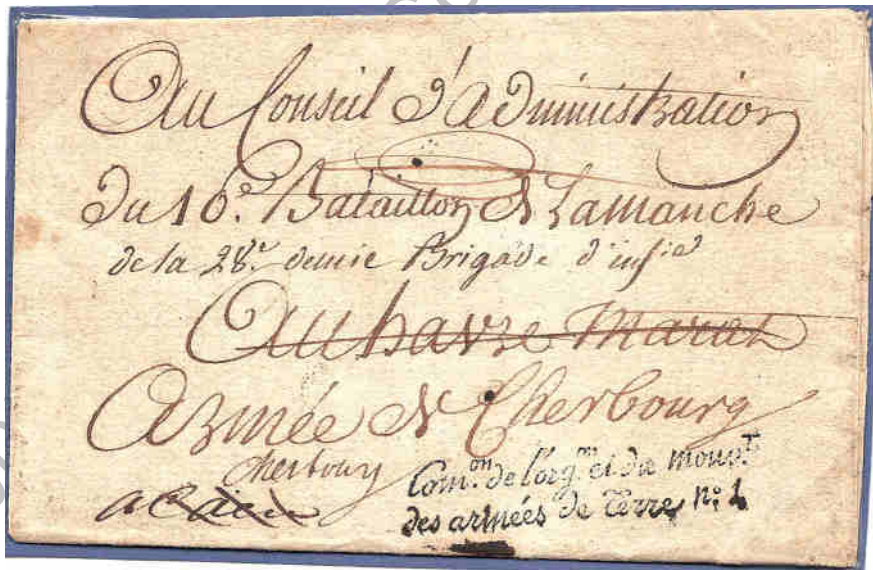 Au Conseil d'administration
du 16e. Bataillon de Lamanche
de la 28e. demie Brigade d'infie
Au havre Marat
Armée de Cherbourg
cherbourg
a Caen
Comon. de l'orgon. et du mouvt.
des armées de Terre n° 1